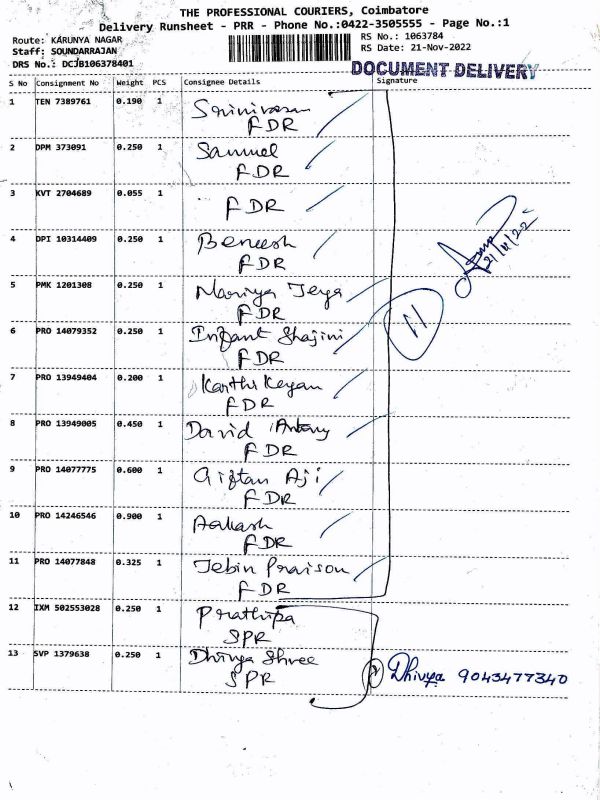 THE PROFESSIONAL COURIERS, Coimbatore
Delivery Runsheet - PRR - Phone No.:0422-3505555 - Page No.:1
Route: KARUNYA NAGAR
RS No.: 1063784
Staff: SOUNDARRAJAN
RS Date: 21-Nov-2022
DRS No.: DCJB106378401
DOCUMENT DELIVERY
S No Consignment No Weight PCS Consignee Details Signature
1 TEN 7389761 0.190 1 Srinivasan
FDR
2 DPM 373091 0.250 1 Samuel
FDR
3 KVT 2704689 0.055 1
FDR
4 DPI 10314409 0.250 1 Beneesh
FDR
21/11/22
5 PMK 1201308 0.250 1 Mariya Jeya
FDR
11
6 PRO 14079352 0.250 1 Infant Shajini
FDR
7 PRO 13949404 0.200 1 Karthi Keyan
FDR
8 PRO 13949005 0.450 1 David Antony
FDR
9 PRO 14077775 0.600 1 Giftan Aji
FDR
10 PRO 14246546 0.900 1 Aakash
FDR
11 PRO 14077848 0.325 1 Jebin Praison
FDR
12 IXM 502553028 0.250 1 Prathipa
SPR
13 SVP 1379638 0.250 1 Dhivya Shree
SPR
Dhivya 9043477340